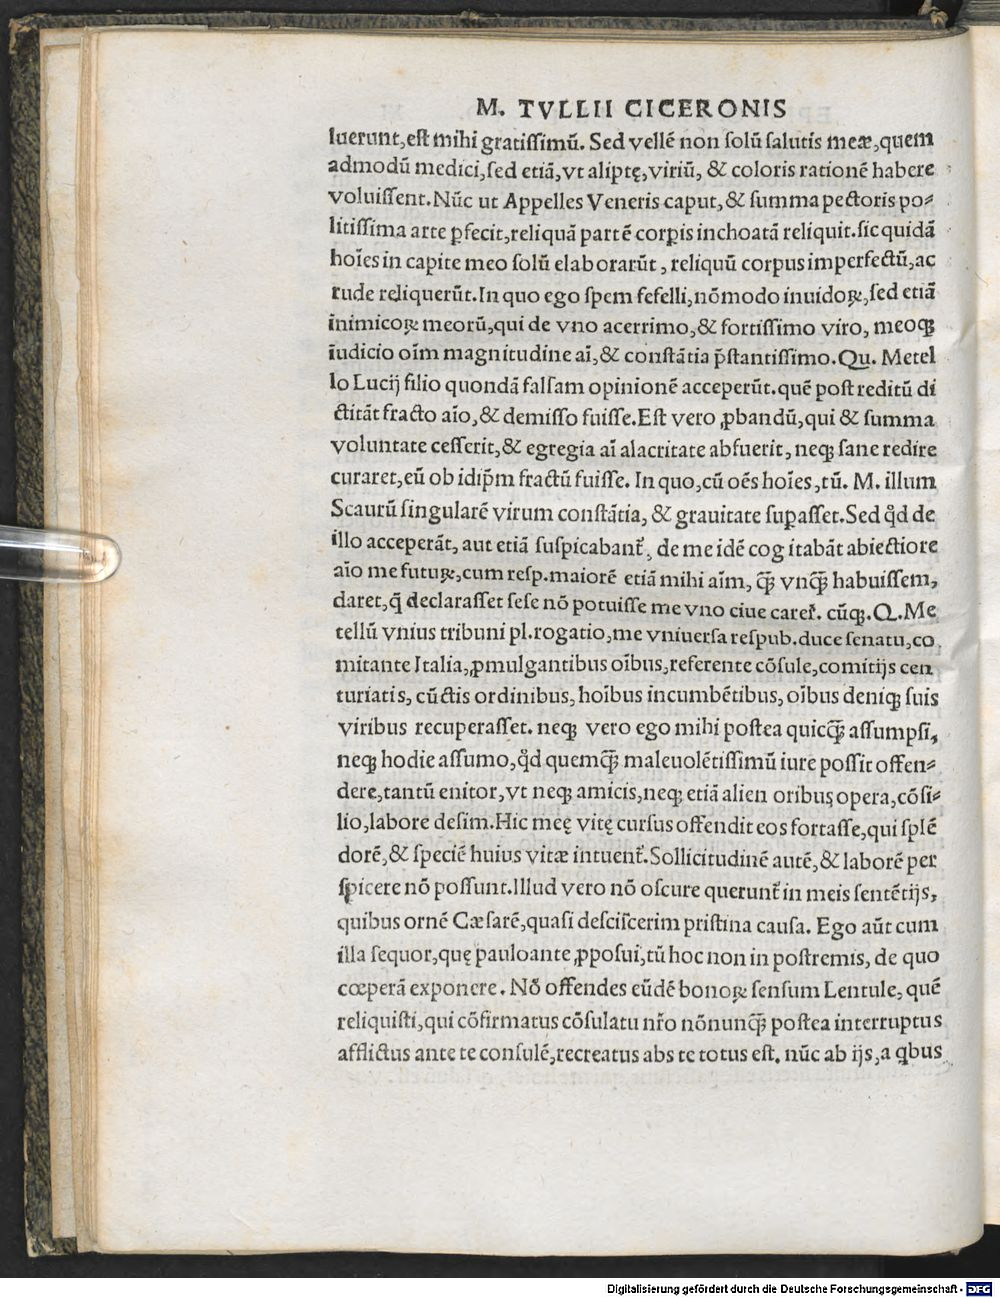 M. TVLLII CICERONIS
luerunt,est mihi gratissimū. Sed vellē non solū salutis meæ,quem
admodū medici,sed etiā,vt aliptę,viriū, & coloris rationē habere
voluissent.Nūc ut Appelles Veneris caput,& summa pectoris po⸗
litissima arte ꝑfecit,reliquā partē corꝑis inchoatā reliquit.sic quidā
hoīes in capite meo solū elaborarūt, reliquū corpus imperfectū,ac
rude reliquerūt.In quo ego spem fefelli,nōmodo inuidoꝝ,sed etiā
inimicoꝝ meorū,qui de vno acerrimo,& fortissimo viro, meoqꝫ
iudicio oīm magnitudine aī,& constātia p̄stantissimo.Qu. Metel
lo Lucij filio quondā falsam opinionē acceperūt.quē post reditū di
ctitāt fracto aīo,& demisso fuisse.Est vero ꝓbandū,qui & summa
voluntate cesserit,& egregia aī alacritate abfuerit, neqꝫ sane redire
curaret,eū ob idip̄m fractū fuisse. In quo,cū oēs hoīes,tū. M. illum
Scaurū singularē virum constātia, & grauitate suꝑasset.Sed qd̄ de
illo acceperāt, aut etiā suspicabant᷑, de me idē cogitabāt abiectiore
aīo me futuꝝ,cum resp.maiorē etiā mihi aīm, q̄ꝫ vnq̄ꝫ habuissem,
daret,q̄ declarasset sese nō potuisse me vno ciue carer̄. cūqꝫ.Q.Me
tellū vnius tribuni pl.rogatio,me vniuersa respub.duce senatu,co
mitante Italia,ꝓmulgantibus oībus,referente cōsule,comitijs cen
turiatis, cūctis ordinibus, hoībus incumbētibus, oībus deniqꝫ suis
viribus recuperasset. neqꝫ vero ego mihi postea quicq̄ꝫ assumpsi,
neqꝫ hodie assumo,qd̄ quemq̄ꝫ maleuolētissimū iure possit offen⸗
dere,tantū enitor,vt neqꝫ amicis,neqꝫ etiā alien oribus opera,cōsi⸗
lio,labore desim.Hic meę vitę cursus offendit eos fortasse,qui splē
dorē,& speciē huius vitæ intuent᷑.Sollicitudinē autē,& laborē per
spicere nō possunt.Illud vero nō oscure querunt᷑ in meis sentētijs,
quibus ornē Cæsarē,quasi desciscerim pristina causa. Ego aūt cum
illa sequor,quę pauloante ꝓposui,tū hoc non in postremis, de quo
cœperā exponere. Nō offendes eūdē bonoꝝ sensum Lentule, quē
reliquisti,qui cōfirmatus cōsulatu nr̄o nōnunq̄ꝫ postea interruptus
afflictus ante te consulē,recreatus abs te totus est. nūc ab ijs,a qbus
Digitalisierung gefördert durch die Deutsche Forschungsgemeinschaft - DFG